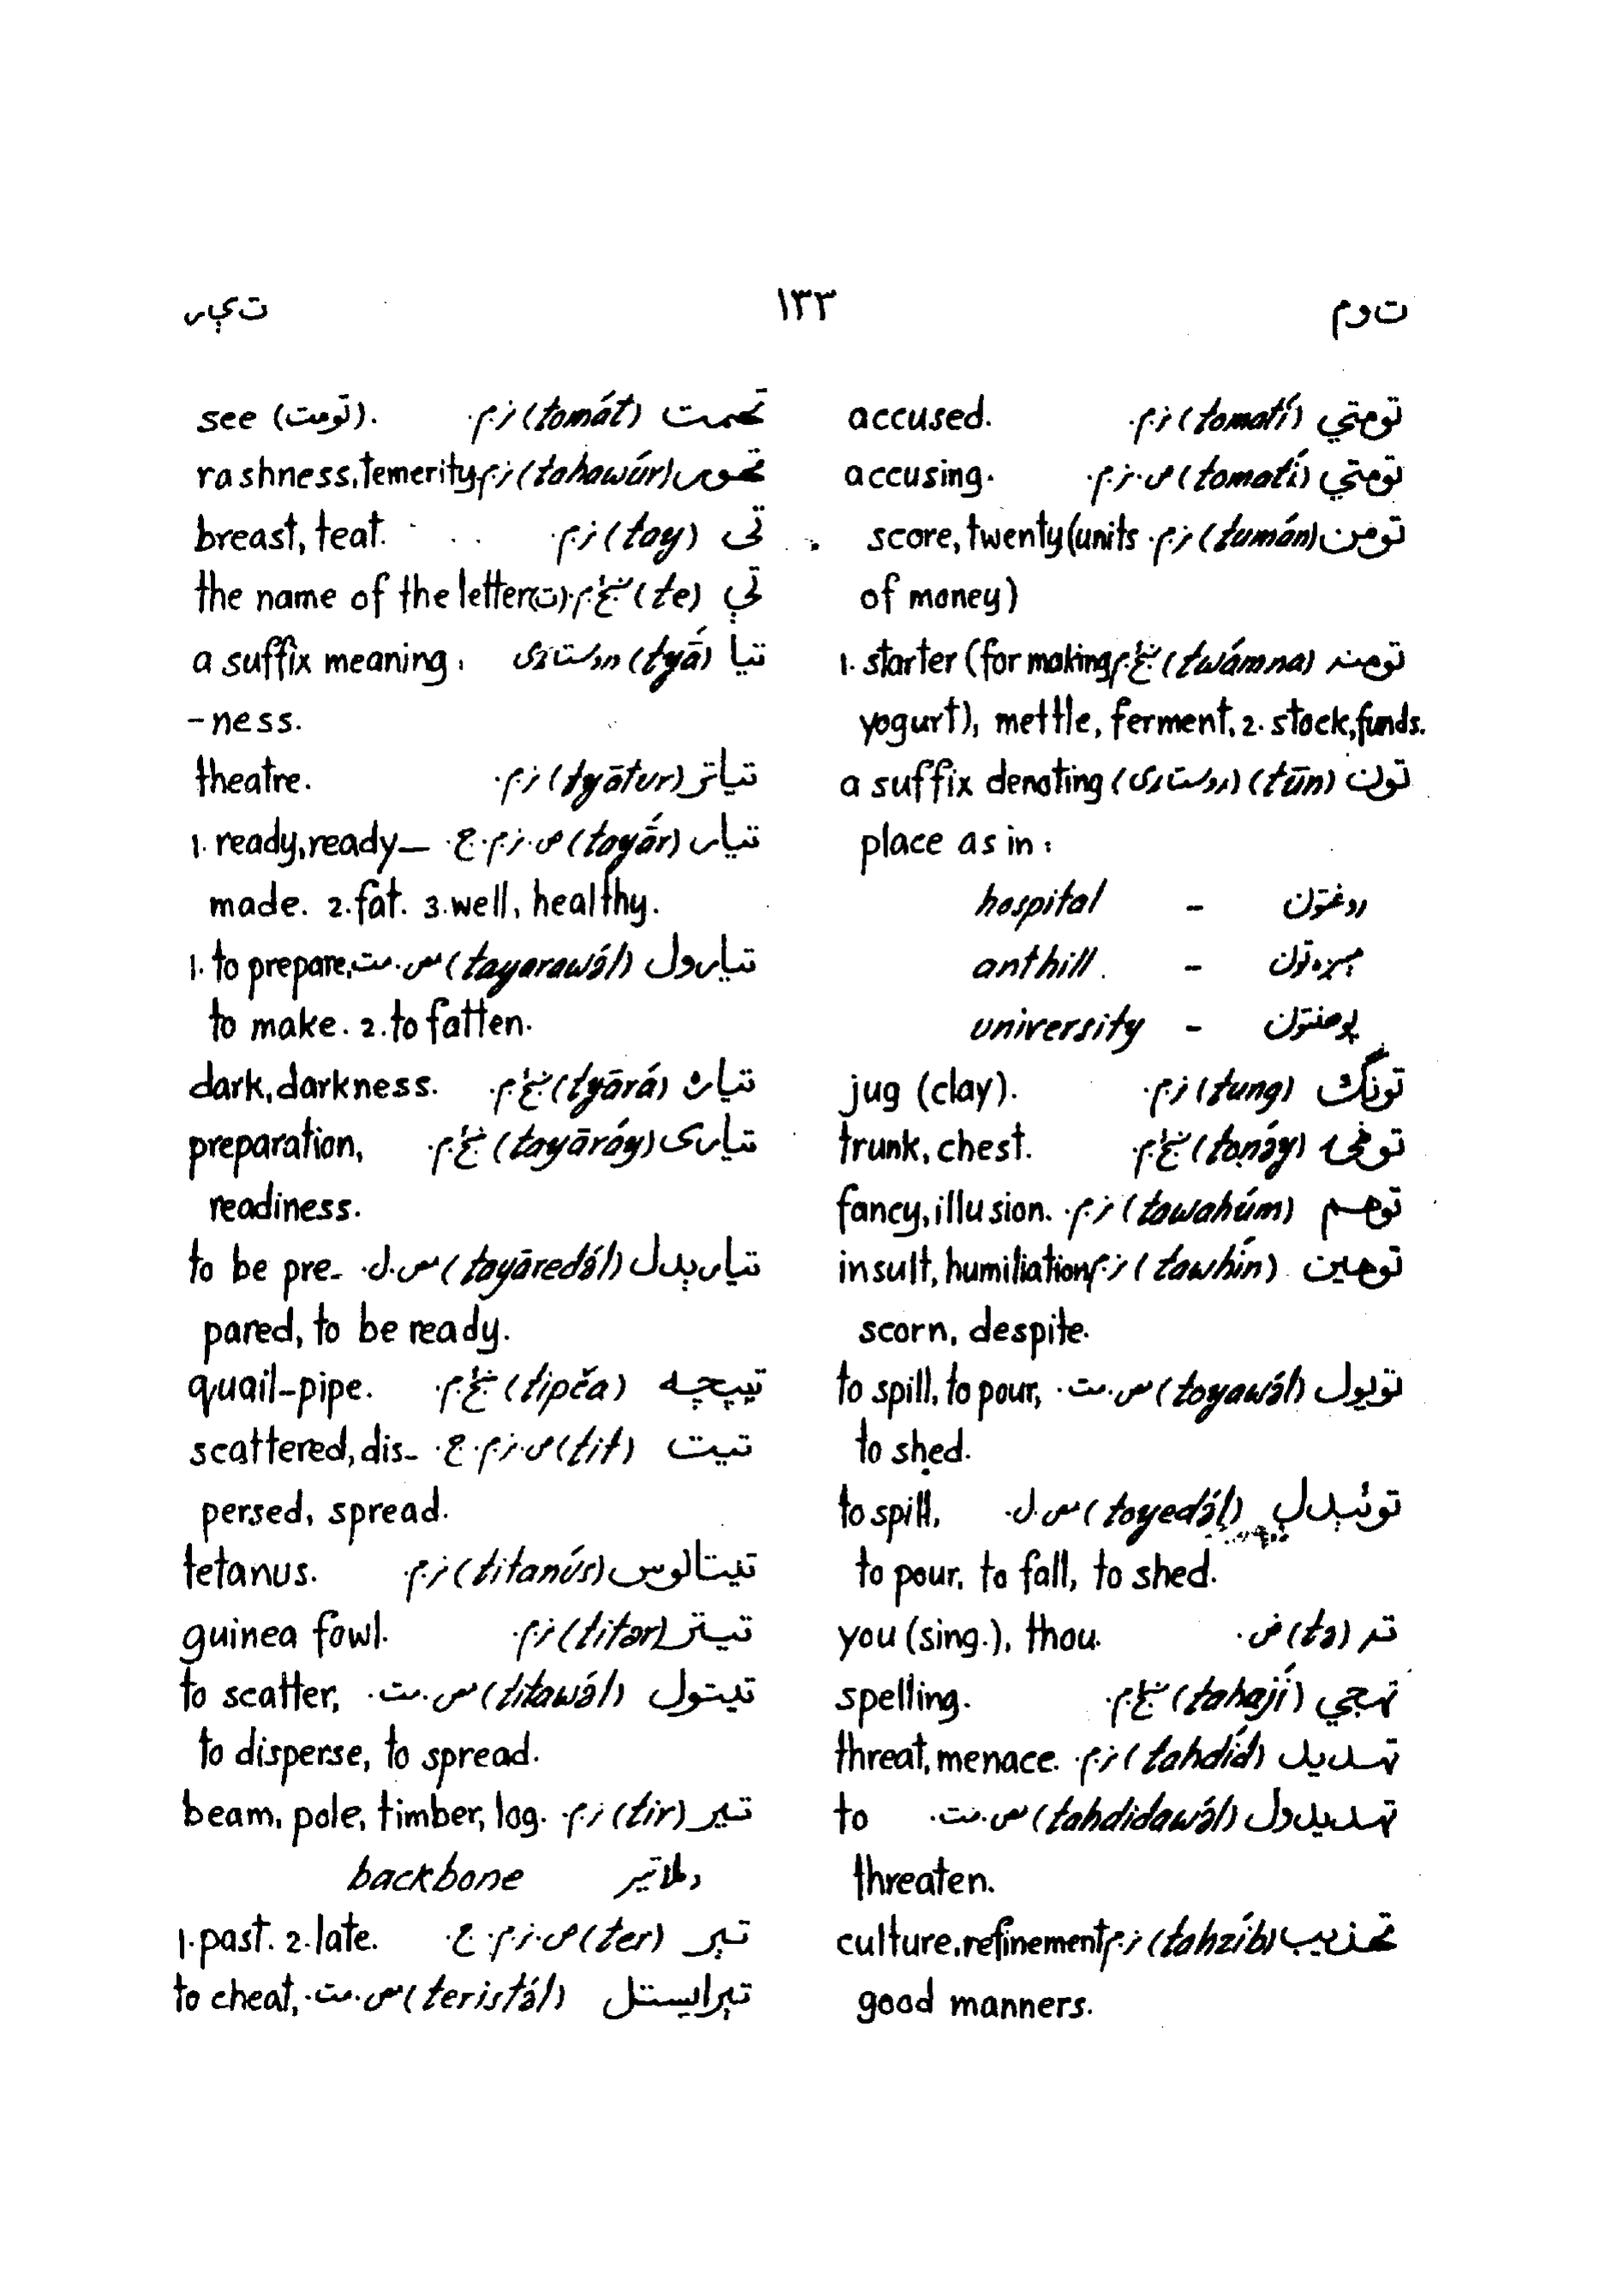 توم ۱۳۳ تېر
تومتي (tomatí) ن.م. accused.
تومتي (tomatí) ص.ن.م. accusing.
تومن (tumán) ن.م. score, twenty (units
of money)
تومنه (twámna) ښځ.م. 1. starter (for making
yogurt), mettle, ferment, 2. stock, funds.
تون (tūn) (روستاړی) a suffix denoting
place as in:
روغتون - hospital
مېږه تون - anthill.
پوهنتون - university
تونگ (tung) ن.م. jug (clay).
(toṇə́y) ښځ.م. trunk, chest.
توهم (tawahúm) ن.م. fancy, illusion.
توهين (tawhín) ن.م. insult, humiliation
scorn, despite.
تويول (toyawə́l) س.مت. to spill, to pour,
to shed.
توئېدل (toyedə́l) س.ل. to spill,
to pour, to fall, to shed.
ته (tə) ض. you (sing.), thou.
تهجي (tahají) ښځ.م. spelling.
تهديد (tahdíd) ن.م. threat, menace.
تهديدول (tahdidawə́l) س.مت. to
threaten.
تهذيب (tahzíb) ن.م. culture, refinement
good manners.
تهمت (tomát) ن.م. see (تومت).
تهور (tahawúr) ن.م. rashness, temerity
تی (tay) ن.م. breast, teat.
تې (te) ښځ.م. the name of the letter (ت)
تيا (tyā́) روستاړی a suffix meaning:
-ness.
تياتر (tyātur) ن.م. theatre.
تيار (tayā́r) ص.ن.م.ج. 1. ready, ready-
made. 2. fat. 3. well, healthy.
تيارول (tayarawə́l) س.مت. 1. to prepare,
to make. 2. to fatten.
تياره (tyārá) ښځ.م. dark, darkness.
تياری (tayāráy) ښځ.م. preparation,
readiness.
تيارېدل (tayāredə́l) س.ل. to be pre-
pared, to be ready.
تيپچه (tipča) ښځ.م. quail-pipe.
تيت (tit) ص.ن.م.ج. scattered, dis-
persed, spread.
تيتانوس (titanús) ن.م. tetanus.
تيتر (titər) ن.م. guinea fowl.
تيتول (titawə́l) س.مت. to scatter,
to disperse, to spread.
تير (tir) ن.م. beam, pole, timber, log.
دملا تير backbone
تېر (ter) ص.ن.م.ج 1. past. 2. late.
تېرايستل (teristə́l) س.مت. to cheat,